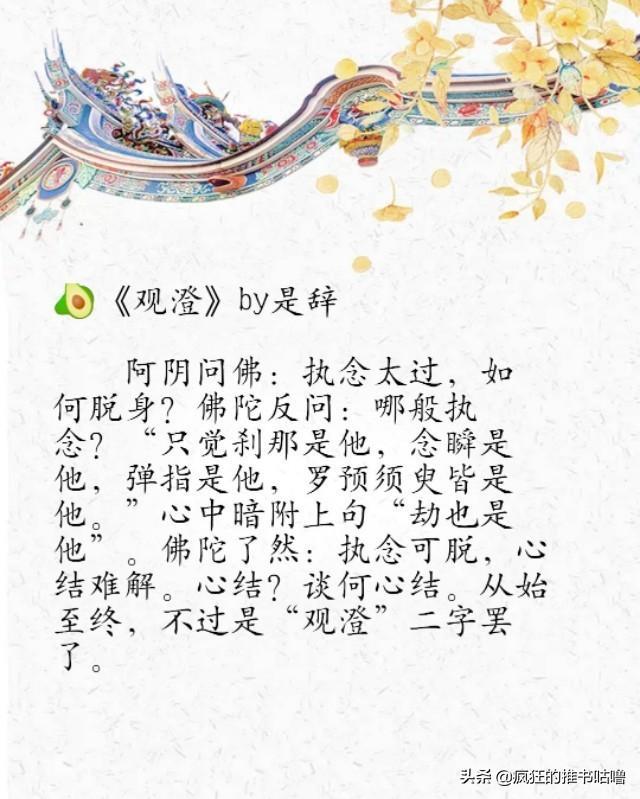 《观澄》by是辞
阿阴问佛：执念太过，如
何脱身？佛陀反问：哪般执
念？“只觉刹那是他，念瞬是
他，弹指是他，罗预须臾皆是
他。”心中暗附上句“劫也是
他”。佛陀了然：执念可脱，心
结难解。心结？谈何心结。从始
至终，不过是“观澄”二字罢
了。
头条 @疯狂的推书咕噜